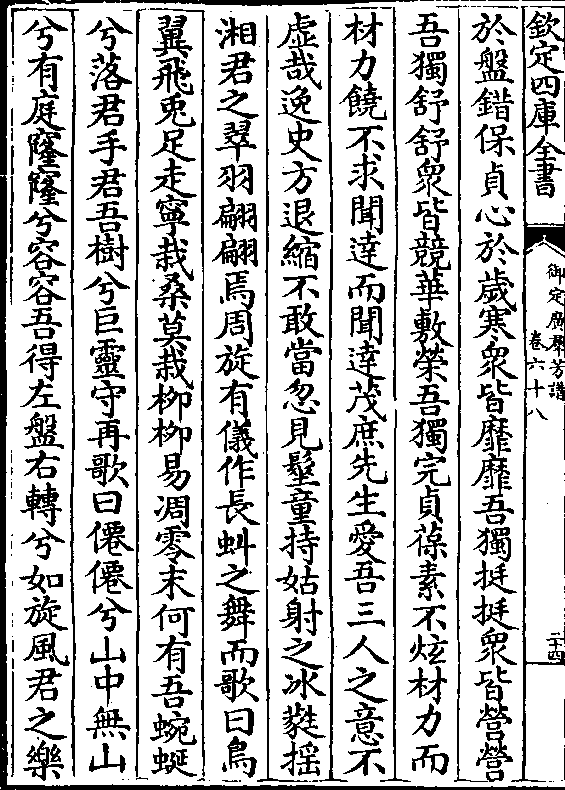 欽定四庫全書
御定廣羣芳譜
卷六十八
二十四
於盤錯保貞心於歲寒衆皆靡靡吾獨挺挺衆皆營營
吾獨舒舒衆皆競華敷榮吾獨完貞葆素不炫材力而
材力饒不求聞達而聞達茂庶先生愛吾三人之意不
虛哉逸史方退縮不敢當忽見髽童持姑射之冰蕤揺
湘君之翠羽翩翩焉周旋有儀作長虯之舞而歌曰烏
翼飛兎足走寧栽桑莫栽柳柳易凋零末何有吾蜿蜒
兮落君手君吾樹兮巨靈守再歌曰僊僊兮山中無山
兮有庭窿窿兮容容吾得左盤右轉兮如旋風君之樂